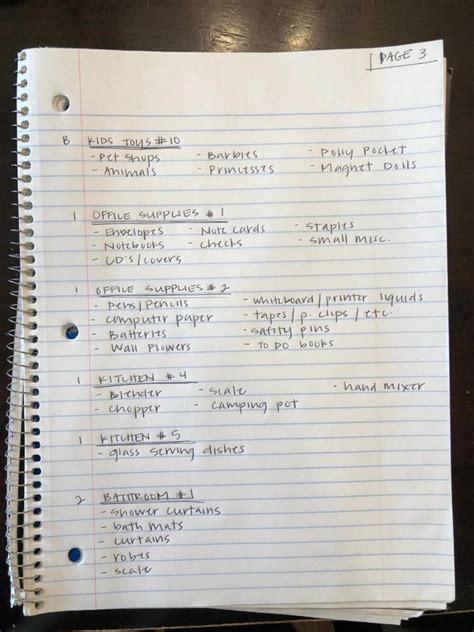 PAGE 3
B KIDS TOYS #10
- Pet Shops - Barbies - Polly Pocket
- Animals - Princesses - Magnet Dolls
1 OFFICE SUPPLIES #1
- Envelopes - Note Cards - Staples
- Notebooks - Checks - small misc.
- CD's/covers
1 OFFICE SUPPLIES #2
- Pens/Pencils - whiteboard/printer liquids
- computer paper - tapes/p. clips/etc.
- Batteries - safety pins
- Wall Flowers - To Do books
1 KITCHEN #4
- Blender - scale - hand mixer
- chopper - camping pot
1 KITCHEN #5
- glass serving dishes
2 BATHROOM #1
- shower curtains
- bath mats
- curtains
- robes
- scale